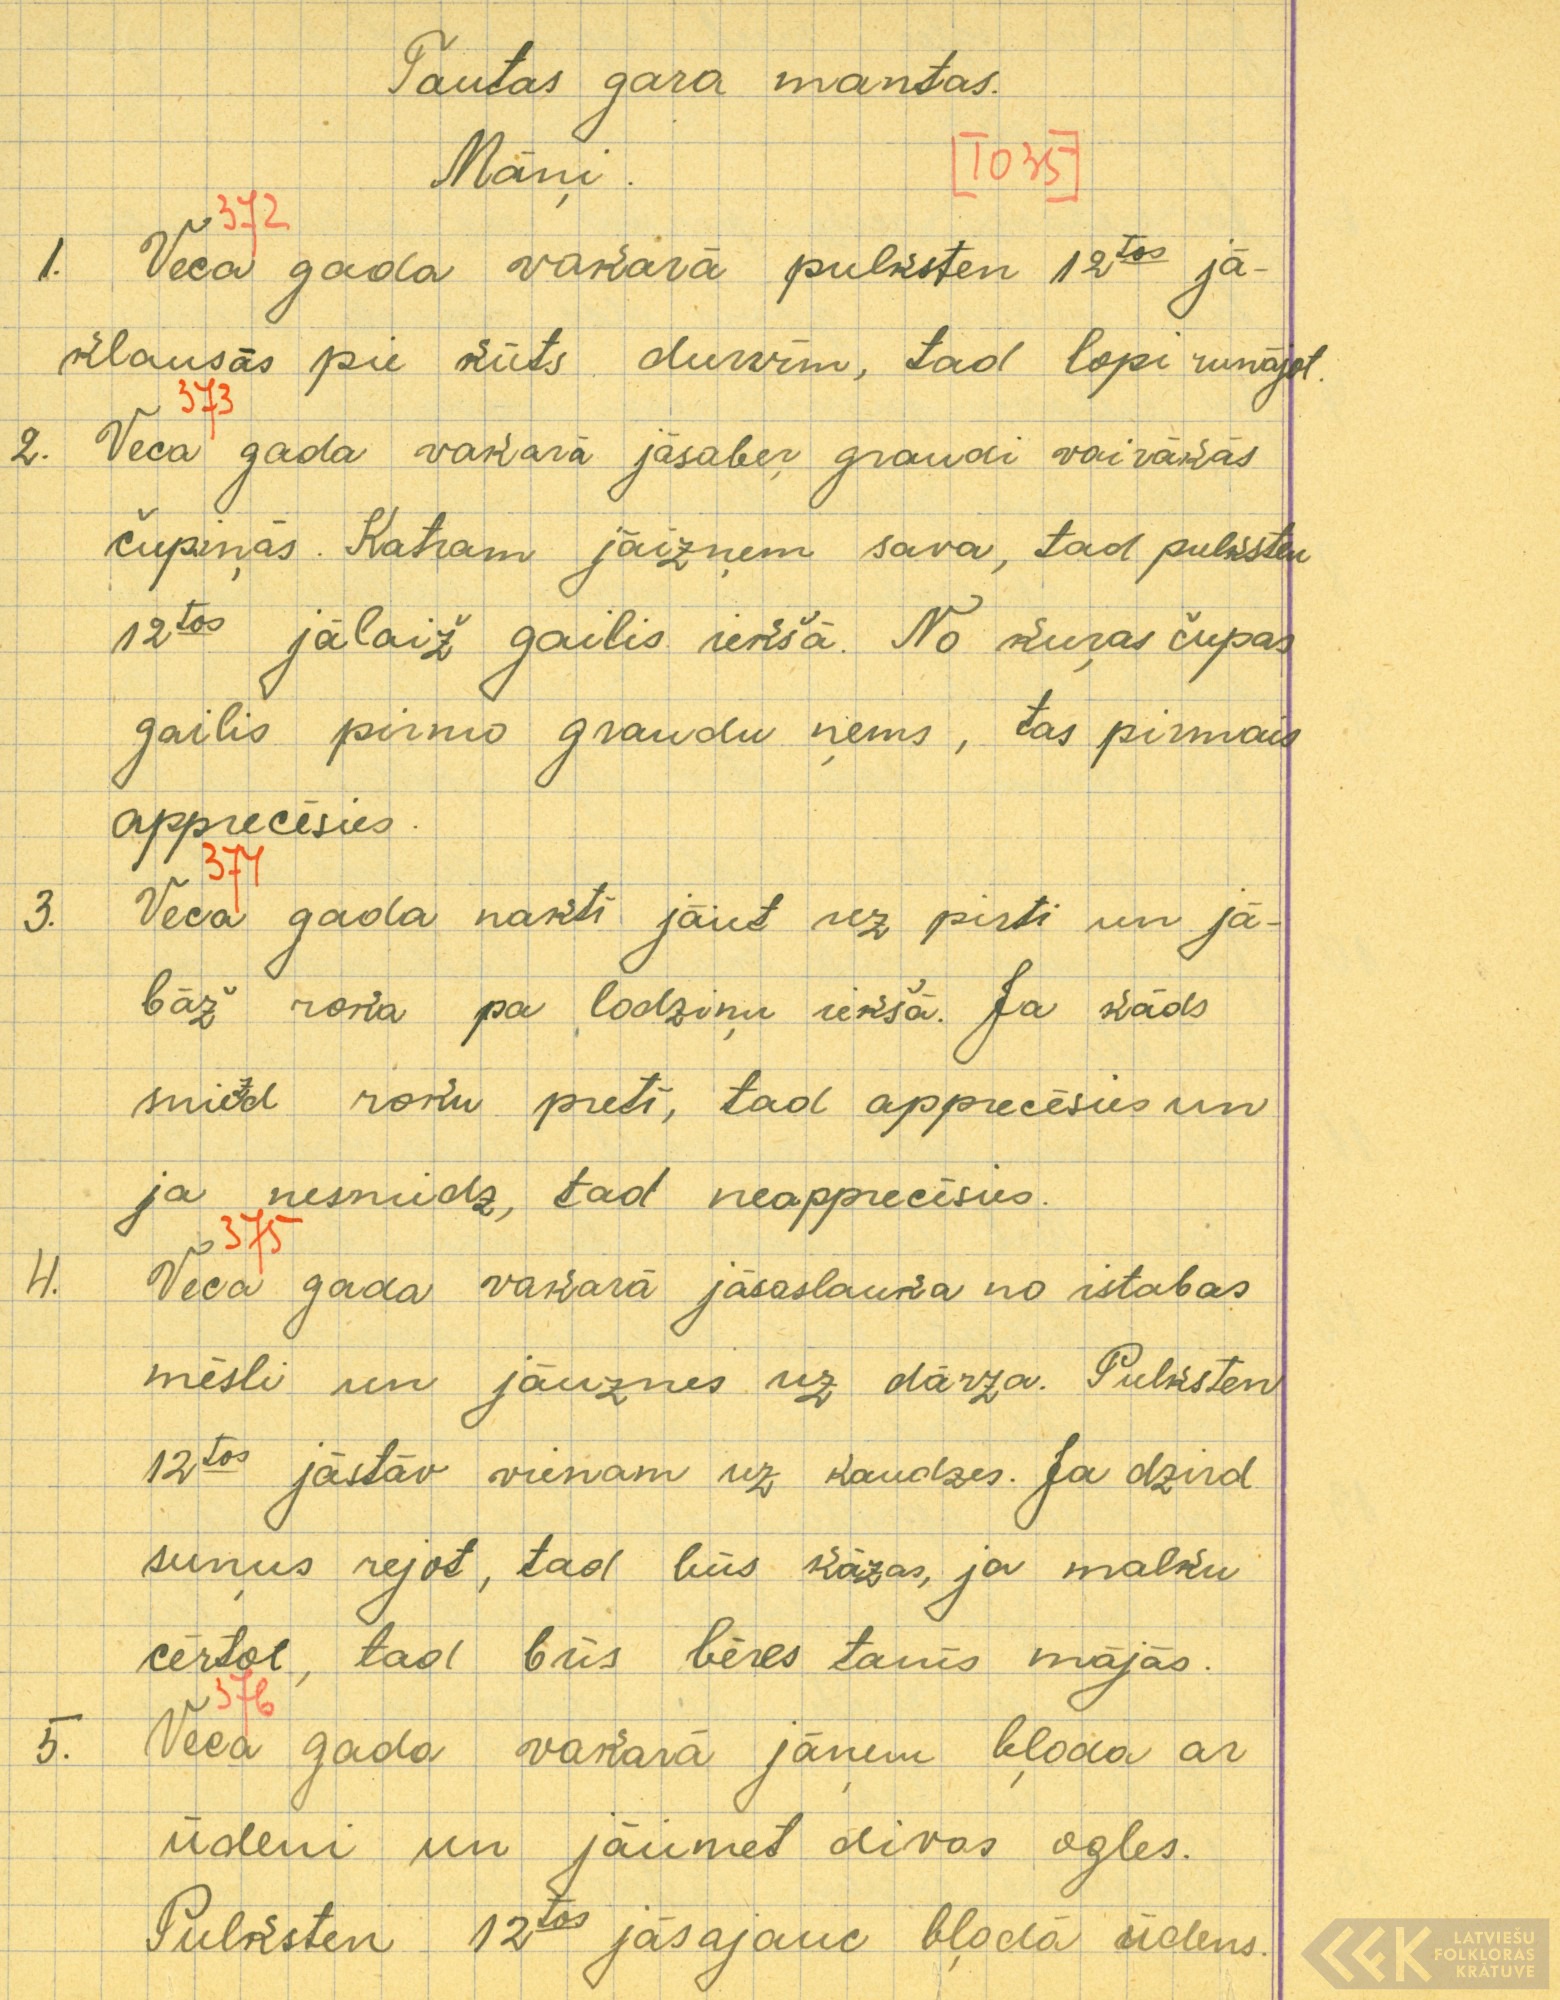 Tautas gara mantas.
Māņi.
[1035]
372
1. Veca gada vakarā pulksten 12tos jā-
klausās pie kūts durvīm, tad lopi runājot.
373
2. Veca gada vakarā jāsaber graudi vairākās
čupiņās. Katram jāizņem sava, tad pulksten
12tos jālaiž gailis iekšā. No kuŗas čupas
gailis pirmo graudu ņems, tas pirmais
apprecēsies.
374
3. Veca gada naktī jāiet uz pirti un jā-
bāž roka pa lodziņu iekšā. Ja kāds
roku pretī, tad apprecēsies un
ja nesniedz, tad neapprecēsies.
375
4. Veca gada vakarā jāsaslauka no istabas
mēsli un jāuznes uz dārza. Pulksten
12tos jāstāv vienam uz kaudzes. Ja dzird
suņus rejot, tad būs kāzas, ja malku
cērtot, tad būs bēres tanīs mājās.
376
5. Veca gada vakarā jāņem bļoda ar
ūdeni un jāiemet divas ogles.
Pulksten 12tos jāsajauc bļodā ūdens.
LATVIEŠU
FOLKLORAS
KRĀTUVE